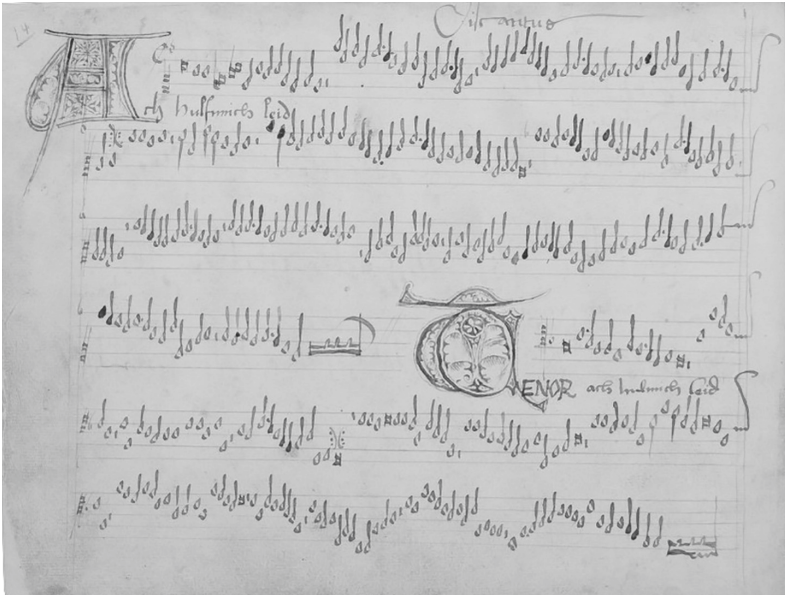 14
Disc antus
Ach hulfmich leid
TENOR ach hulmich leid